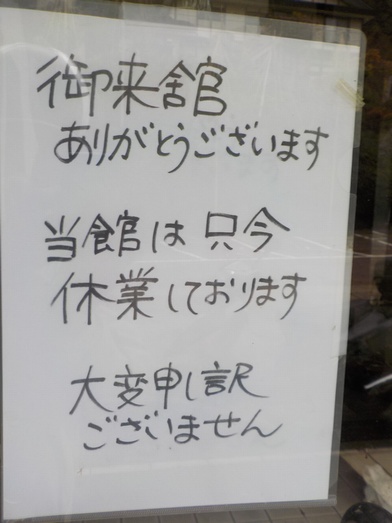 御来舘
ありがとうございます
当館は只今
休業しております
大変申し訳
ございません